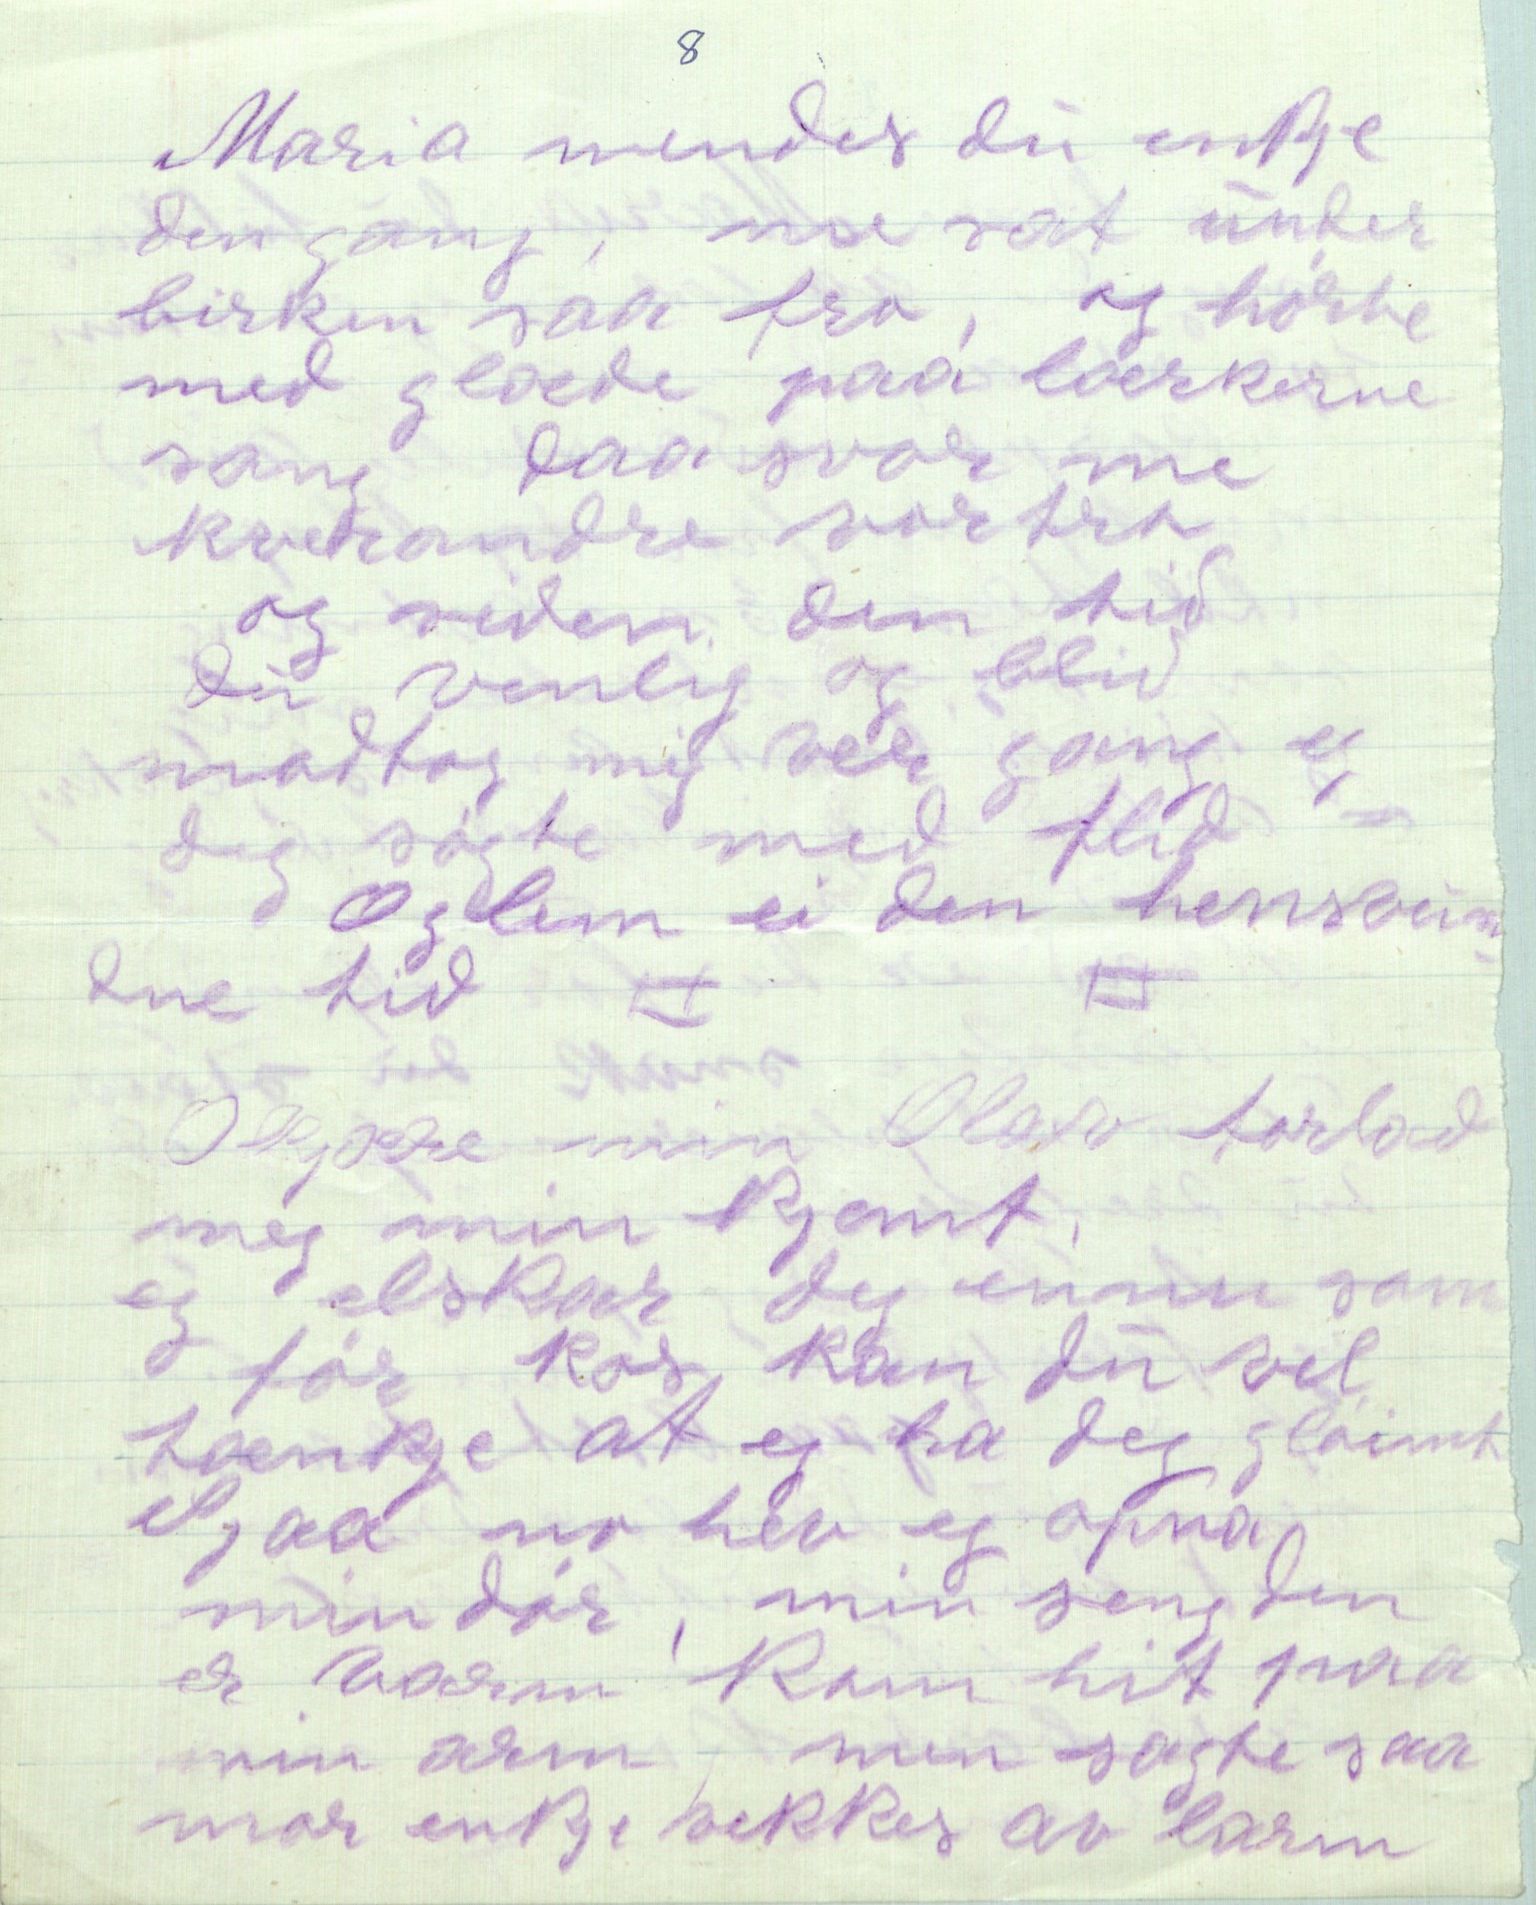 8
Maria mendes du enkje
den gang, me sat under
birken saa fro, og hørte
med glæde paa lærkerne
sang daa svor me
kverandre vor tro
og siden den tid
du venlig og blid
modtog mig ver gang eg
dig søgte med flid
O glem ei den hensvun-
dne tid
O Kjære min Olav forlad
meg min kjemt,
eg elskar deg ennu som
før kos kan du vel
tænkje at eg ha deg gløimt
Sjaa no hev eg opna
min dør, min seng den
er varm kom hit paa
min arm, men sagte saa
mor enkje vekkes av larm